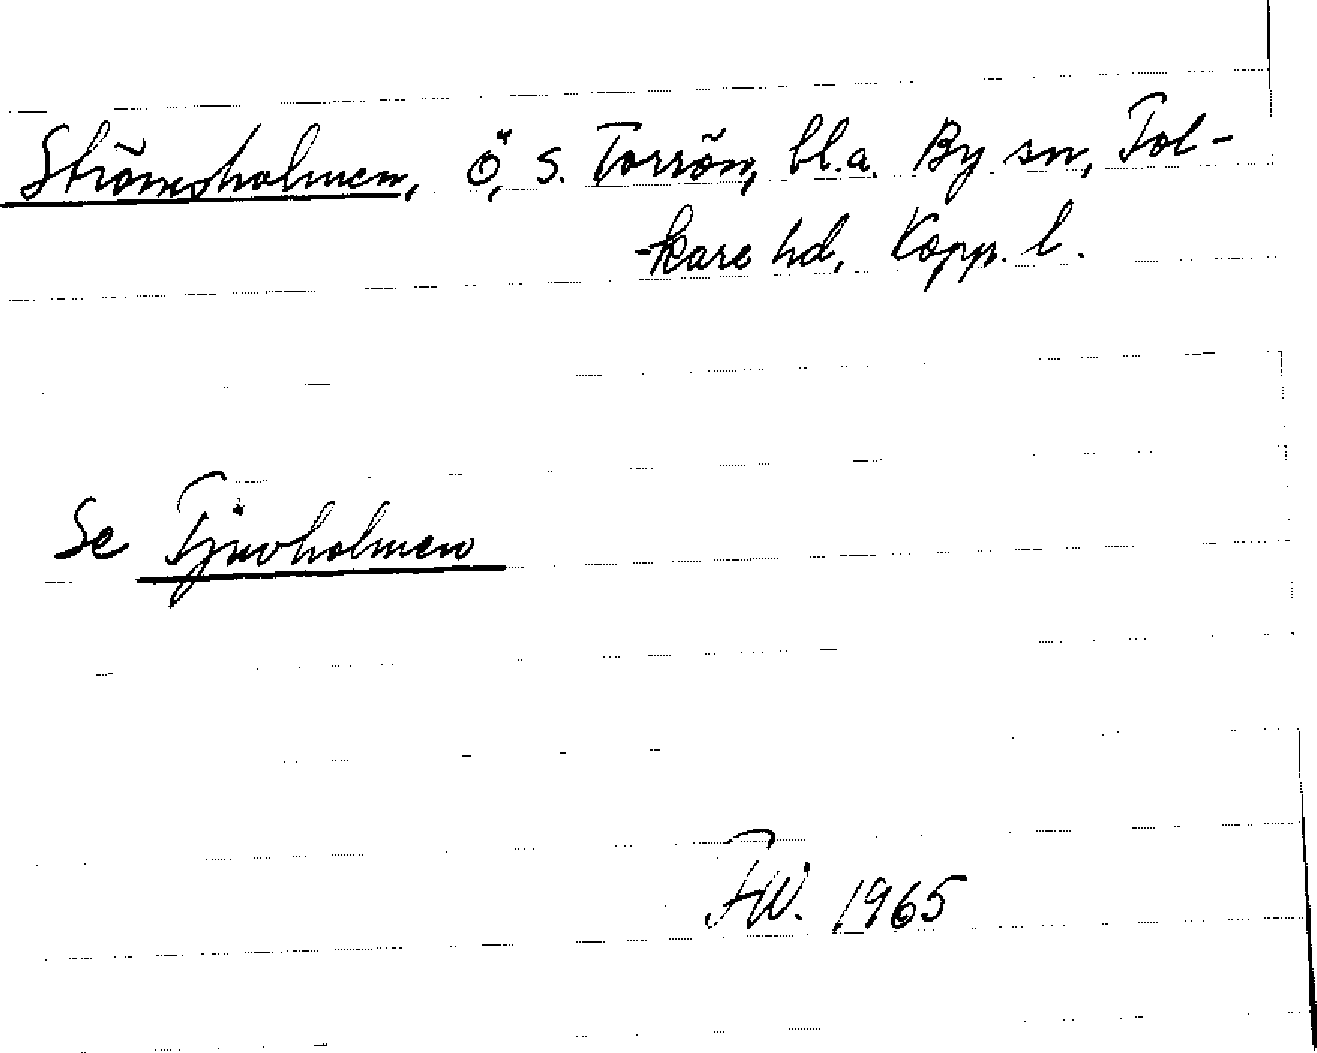 Strömsholmen, ö, s. Torrön, bl.a. By sn, Fol-
kare hd, Kopp. l.
Se Tjuvholmen
FW. 1965